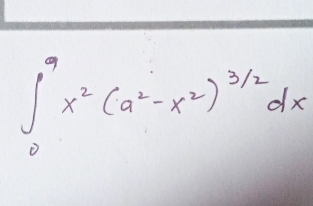 ∫₀ᵃ x² (a² - x²)^3/2 dx